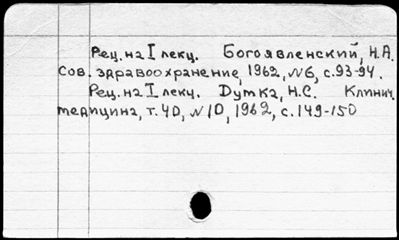 Рец. на I лекц. Богоявленский, Н.А.
Сов. здравоохранение, 1962, №6, с.93-94.
Рец. на I лекц. Думка, Н.С. Клинич.
медицина, т.40, №10, 1962, с.149-150